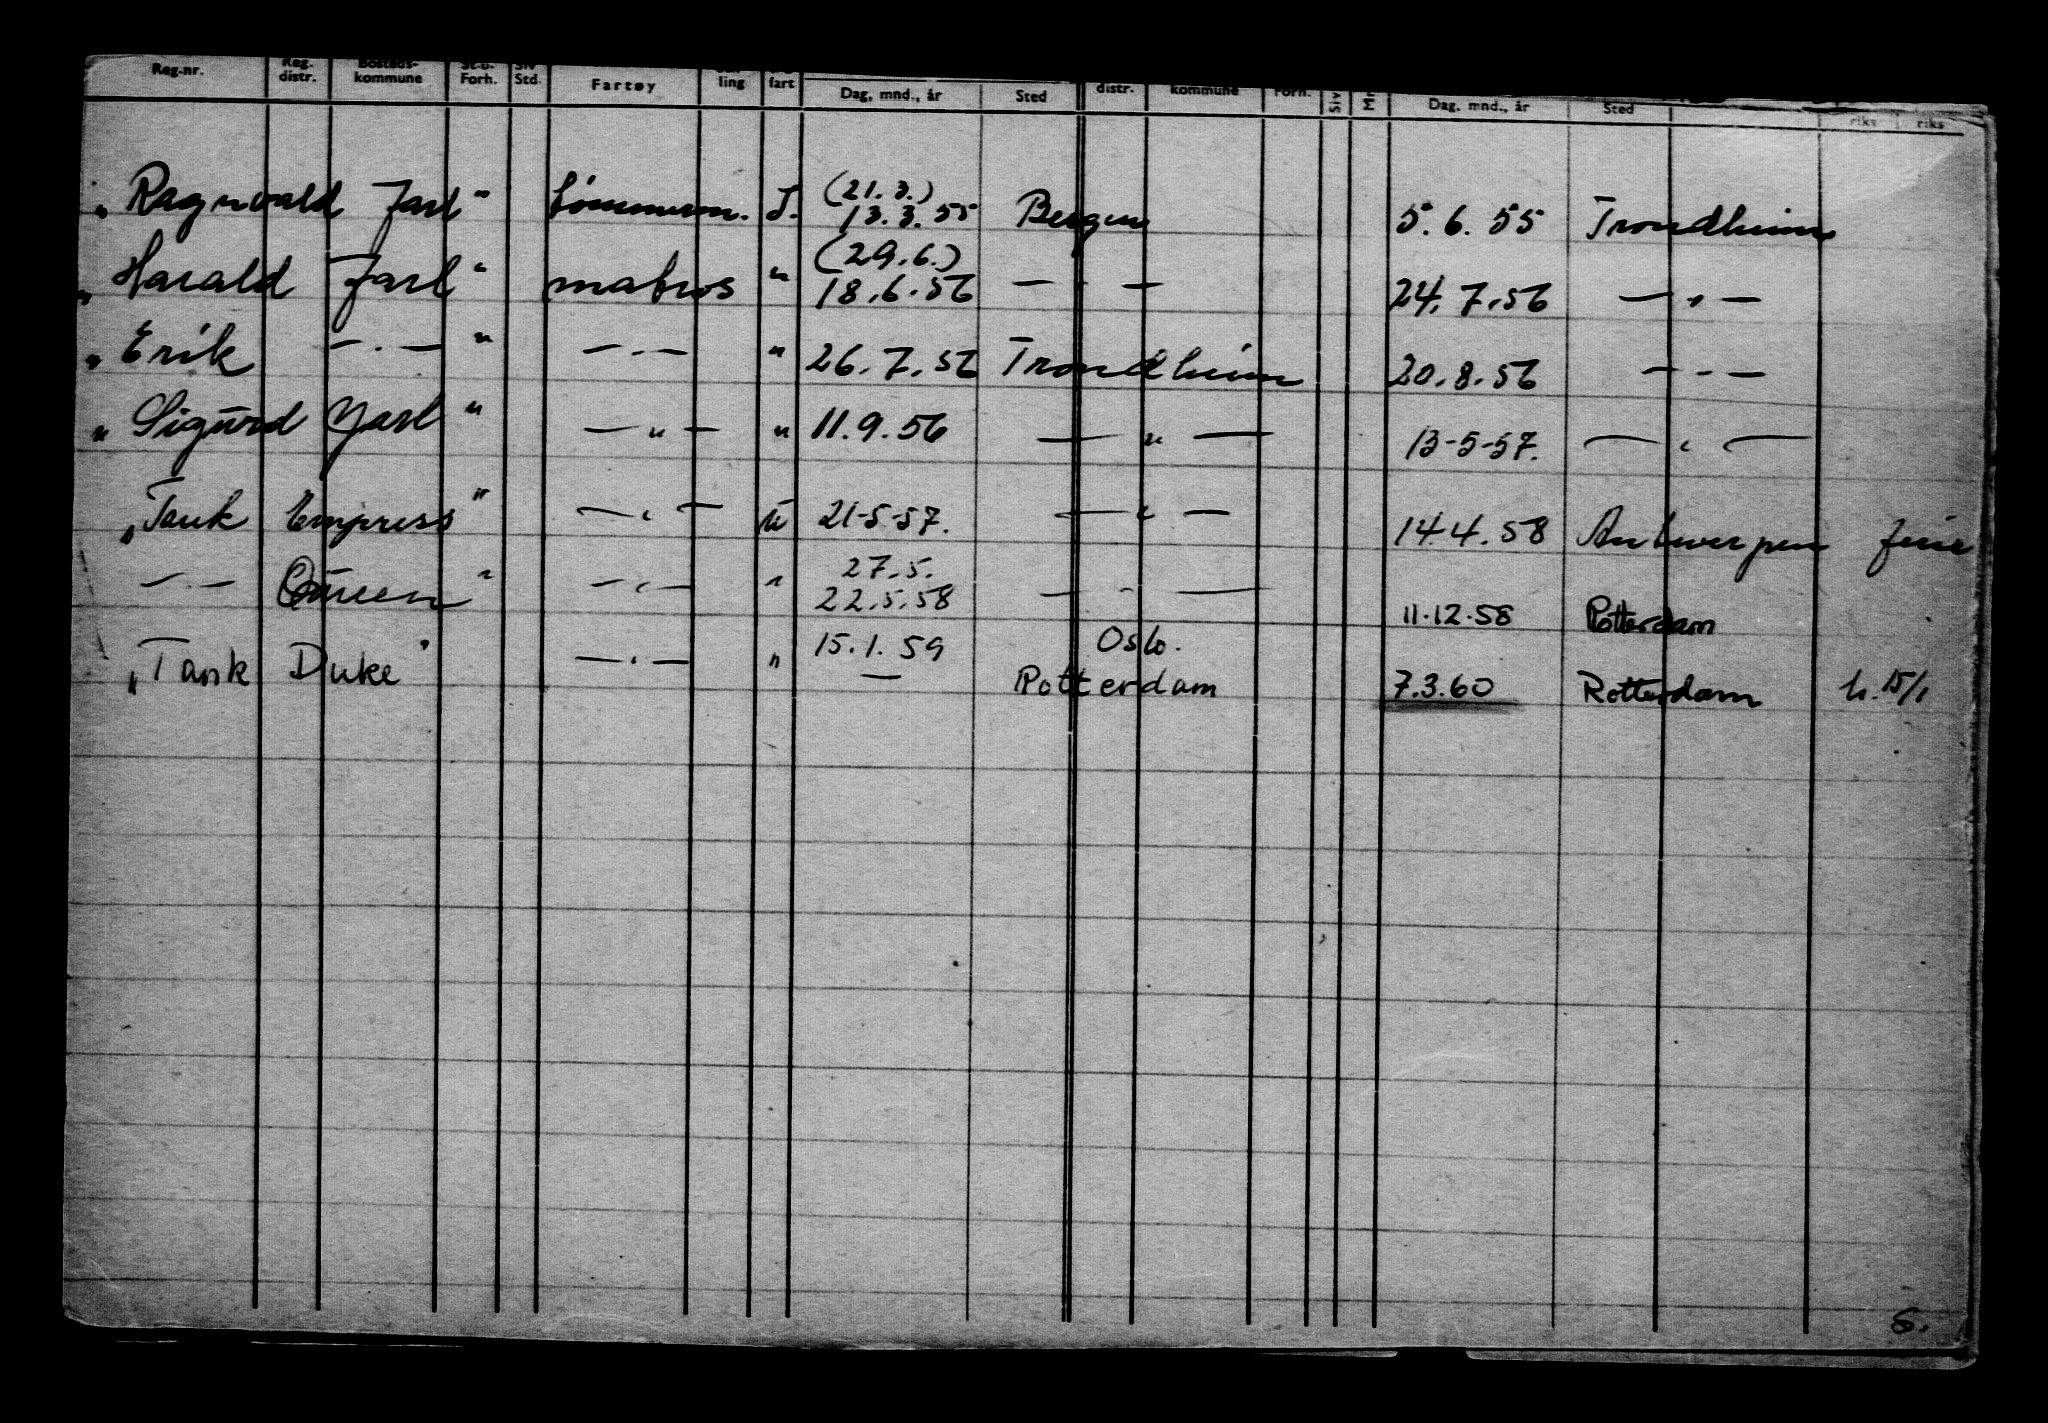 Reg-nr. Reg. distr. Bosteds- kommune St.b. Forh. Siv Std. Fartøy ling fart Dag, mnd., år Sted distr. kommune Forh. Siv Dag, mnd., år Sted riks riks
„ Ragnvald Jarl " tømmerm. I. (21.3.) 13.3.55 Bergen 5.6.55 Trondheim
„ Harald Jarl " matros " (29.6.) 18.6.56 — " — 24.7.56 — " —
„ Erik — " — " — " — " 26.7.56 Trondheim 20.8.56 — " —
„ Sigurd Jarl " — " — " 11.9.56 — " — 13-5-57. — " —
„ Tank Empress " — " — u 21-5-57. — " — 14.4.58 Antwerpen ferie
— " — Queen " — " — " 27.5. 22.5.58 — " — 11.12.58 Rotterdam
„ Tank Duke " — " — " 15.1.59 Oslo.
— Rotterdam 7.3.60 Rotterdam h. 15/1
S.